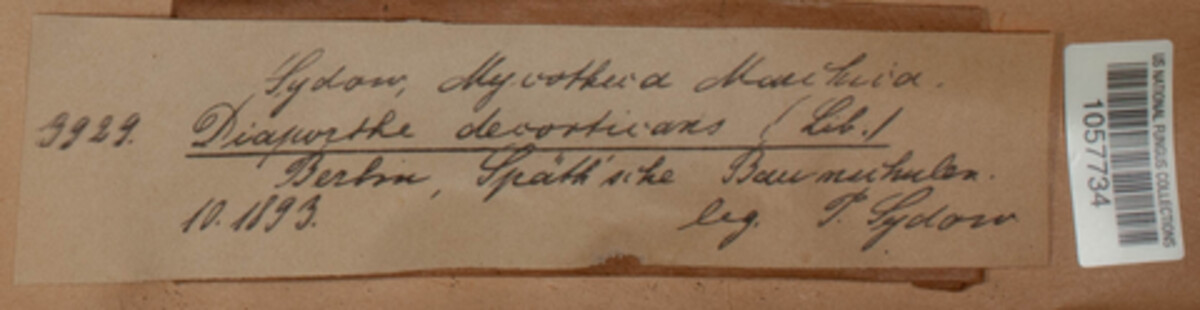 Sydow, Mycotheca Marchica.
3929. Diaporthe decorticans (Lib.)
Berlin, Späth'sche Baumschulen.
10. 1893. leg. P. Sydow
US NATIONAL FUNGUS COLLECTIONS
10577734